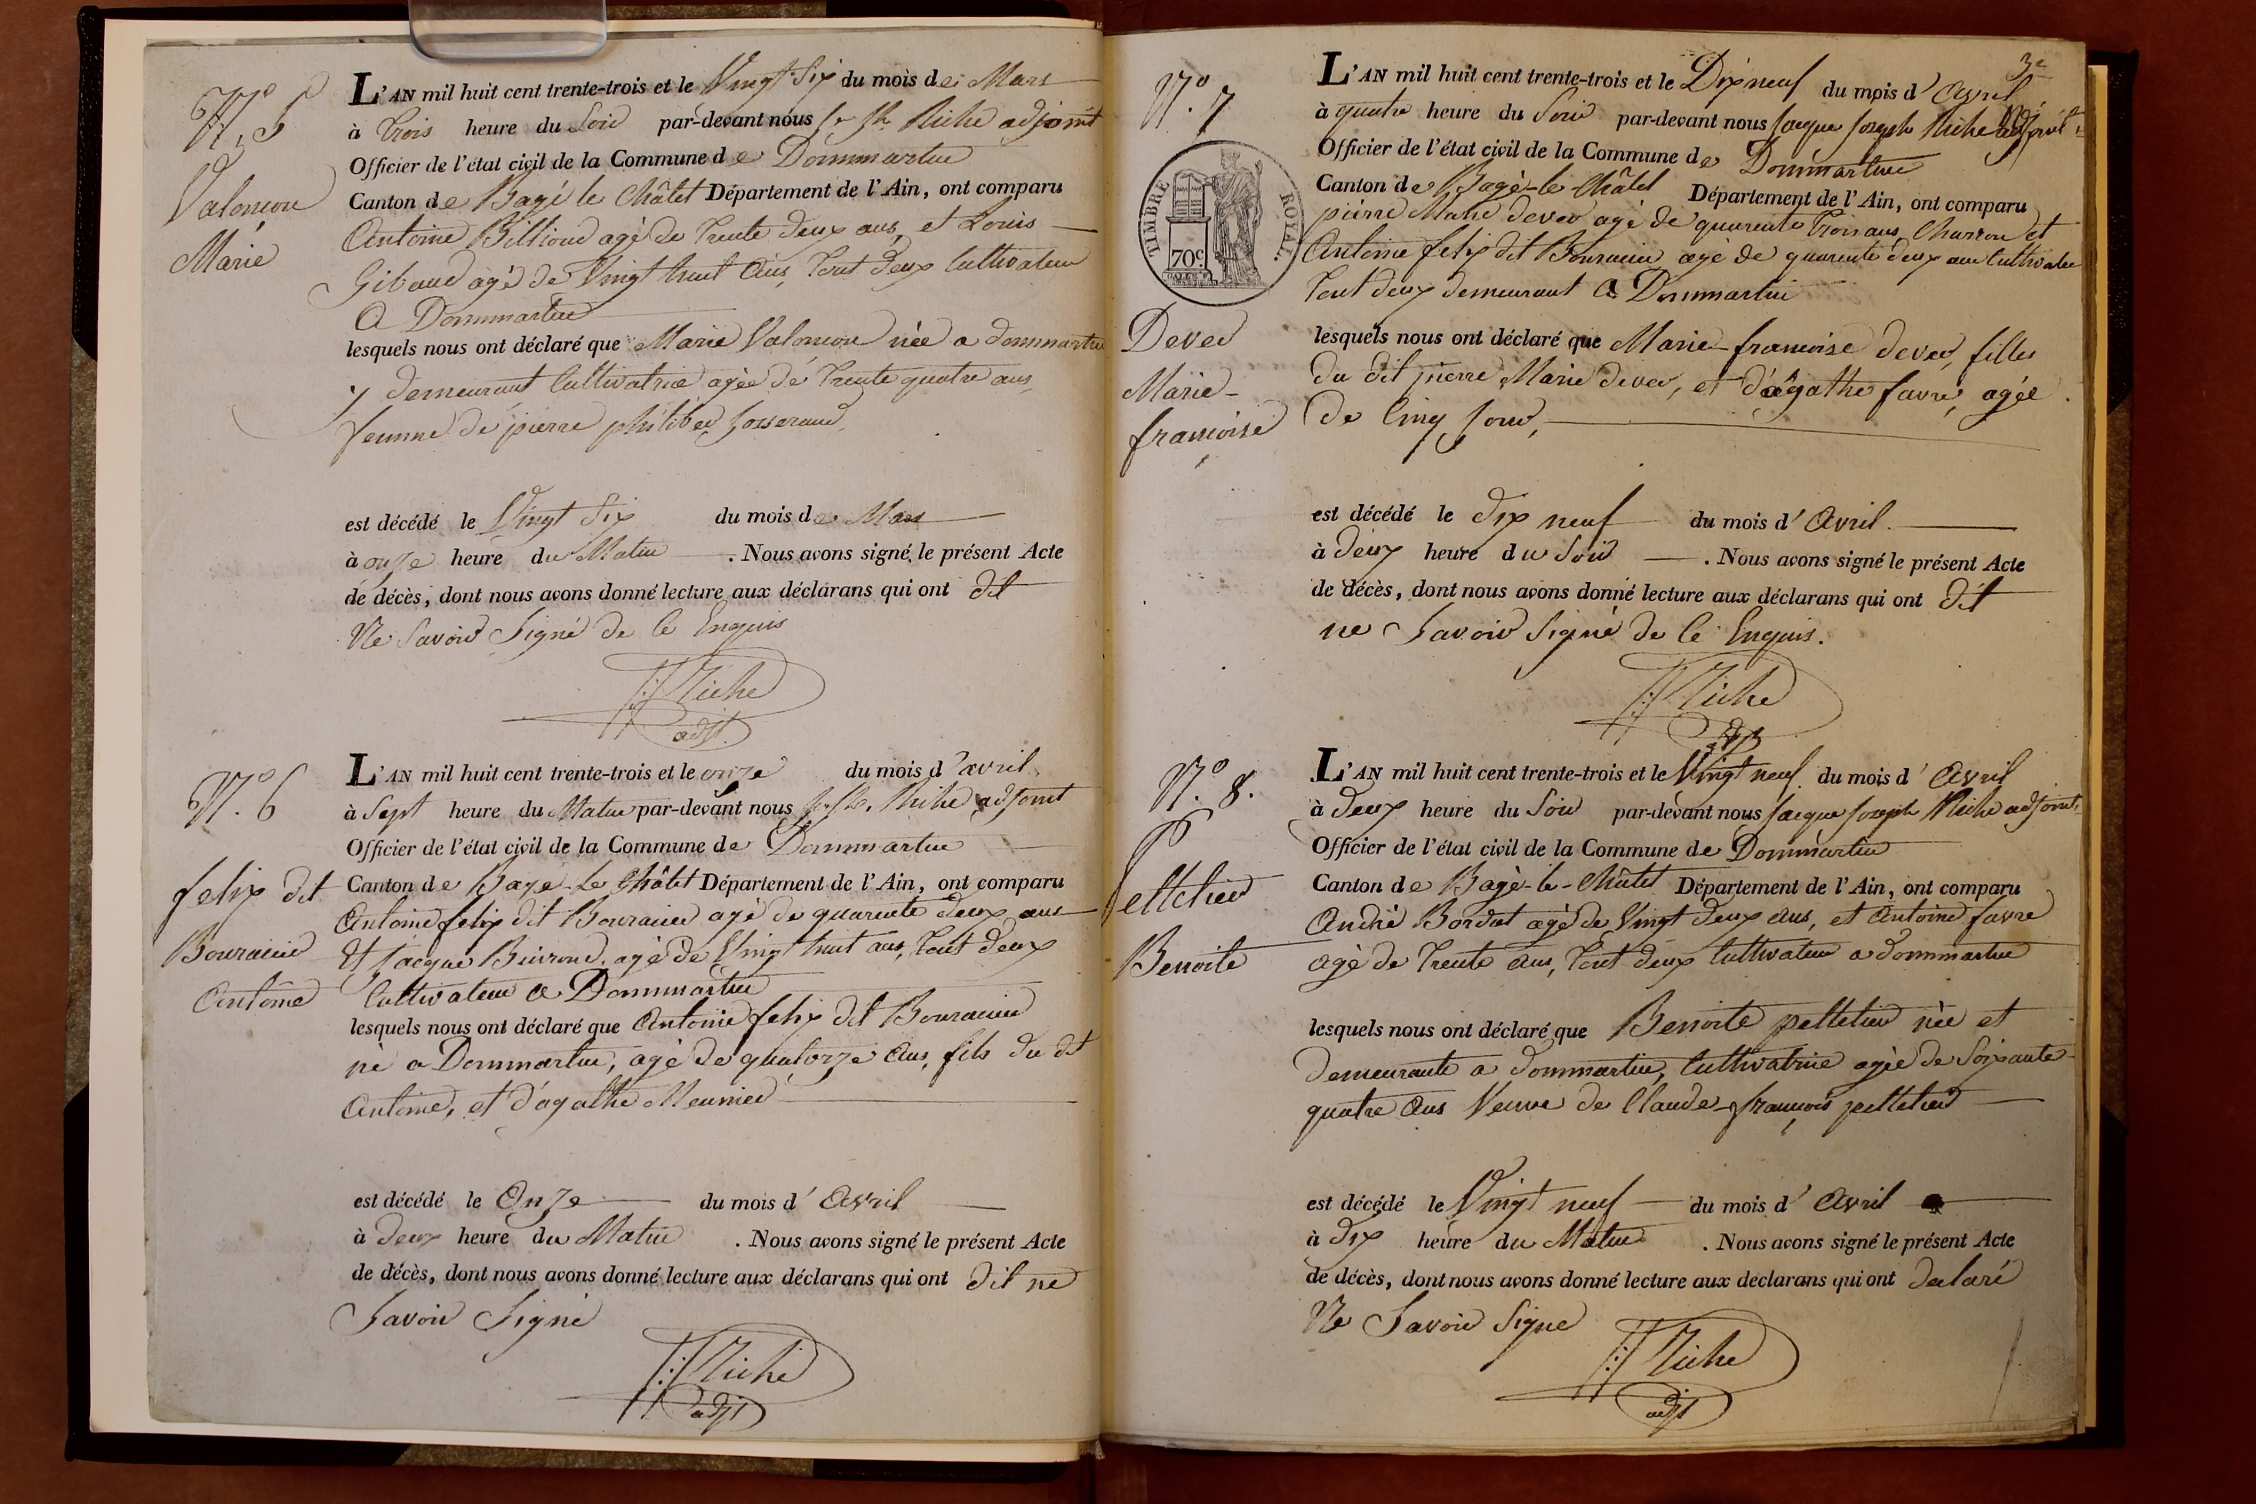 N.° 5
Valonçon
Marie
L'AN mil huit cent trente-trois et le Vingt Six du mois de Mars
à trois heure du Soir par-devant nous Jque Jph Riche adjoint
Officier de l'état civil de la Commune de Dommartin
Canton de Bagé le Châtel Département de l'Ain, ont comparu
Antoine Billioud agé de trente deux ans, et Louis
Gibaud agé de Vingt huit Ans, tout deux Cultivateur
A Dommartin
lesquels nous ont déclaré que Marie Valonçon née a dommartin
y demeurant Cultivatrice agée de trente quatre ans,
femme de pierre philiber Josserand,
est décédé le Vingt Six du mois de Mars
à onze heure du Matin . Nous avons signé le présent Acte
de décès, dont nous avons donné lecture aux déclarans qui ont dit
Ne Savoir Signé de Ce Enquis
Riche
adjt
N.° 6
felix dit
Bouracier
Antoine
L'AN mil huit cent trente-trois et le onze du mois d'avril
à Sept heure du Matin par-devant nous Riche adjoint
Officier de l'état civil de la Commune de Dommartin
Canton de Bagé-Le Châtel Département de l'Ain, ont comparu
Antoine felix dit Bouracier agé de quarente deux ans
Et Jacque Buiron, agé de Vingt huit ans, tout deux
Cultivateur a Dommartin
lesquels nous ont déclaré que Antoine felix dit Bouracier
né a Dommartin, agé de quatorze Ans, fils du dit
Antoine, et d'agathe Meunier
est décédé le Onze du mois d'Avril
à deux heure du Matin . Nous avons signé le présent Acte
de décès, dont nous avons donné lecture aux déclarans qui ont dit ne
Savoir Signé
Riche
adjt
3e
N.° 7
TIMBRE ROYAL
70c.
Dever
Marie-
françoise
L'AN mil huit cent trente-trois et le Dix neuf du mois d'Avril
à quatre heure du Soir par-devant nous Jacque Joseph Riche adjoint
Officier de l'état civil de la Commune de Dommartin
Canton de Bagé-le-Châtel Département de l'Ain, ont comparu
pierre Marie dever agé de quarente trois ans, Charron et
Antoine felix dit Bouracier agé de quarente deux ans Cultivateur
tout deux demeurant A Dommartin
lesquels nous ont déclaré que Marie-françoise dever, fille
du dit pierre Marie dever, et d'agathe favre, agée
de Cinq Jour,
est décédé le dix neuf du mois d'Avril
à deux heure du Soir . Nous avons signé le présent Acte
de décès, dont nous avons donné lecture aux déclarans qui ont dit
ne Savoir Signé de Ce Enquis.
Riche
adjt
N.° 8.
Pelletier
Benoite
L'AN mil huit cent trente-trois et le Vingt neuf du mois d'Avril
à deux heure du Soir par-devant nous Jacque Joseph Riche adjoint
Officier de l'état civil de la Commune de Dommartin
Canton de Bagé-le-Châtel Département de l'Ain, ont comparu
André Bordat agé de Vingt deux ans, et Antoine favre
agé de trente ans, tout deux Cultivateur a dommartin
lesquels nous ont déclaré que Benoite pelletier née et
demeurante a dommartin, Cultivatrice agée de Soixante
quatre Ans Veuve de Claude-françois pelletier
est décédé le Vingt neuf du mois d'Avril
à dix heure du Matin . Nous avons signé le présent Acte
de décès, dont nous avons donné lecture aux declarans qui ont declaré
Ne Savoir Signe
Riche
adjt